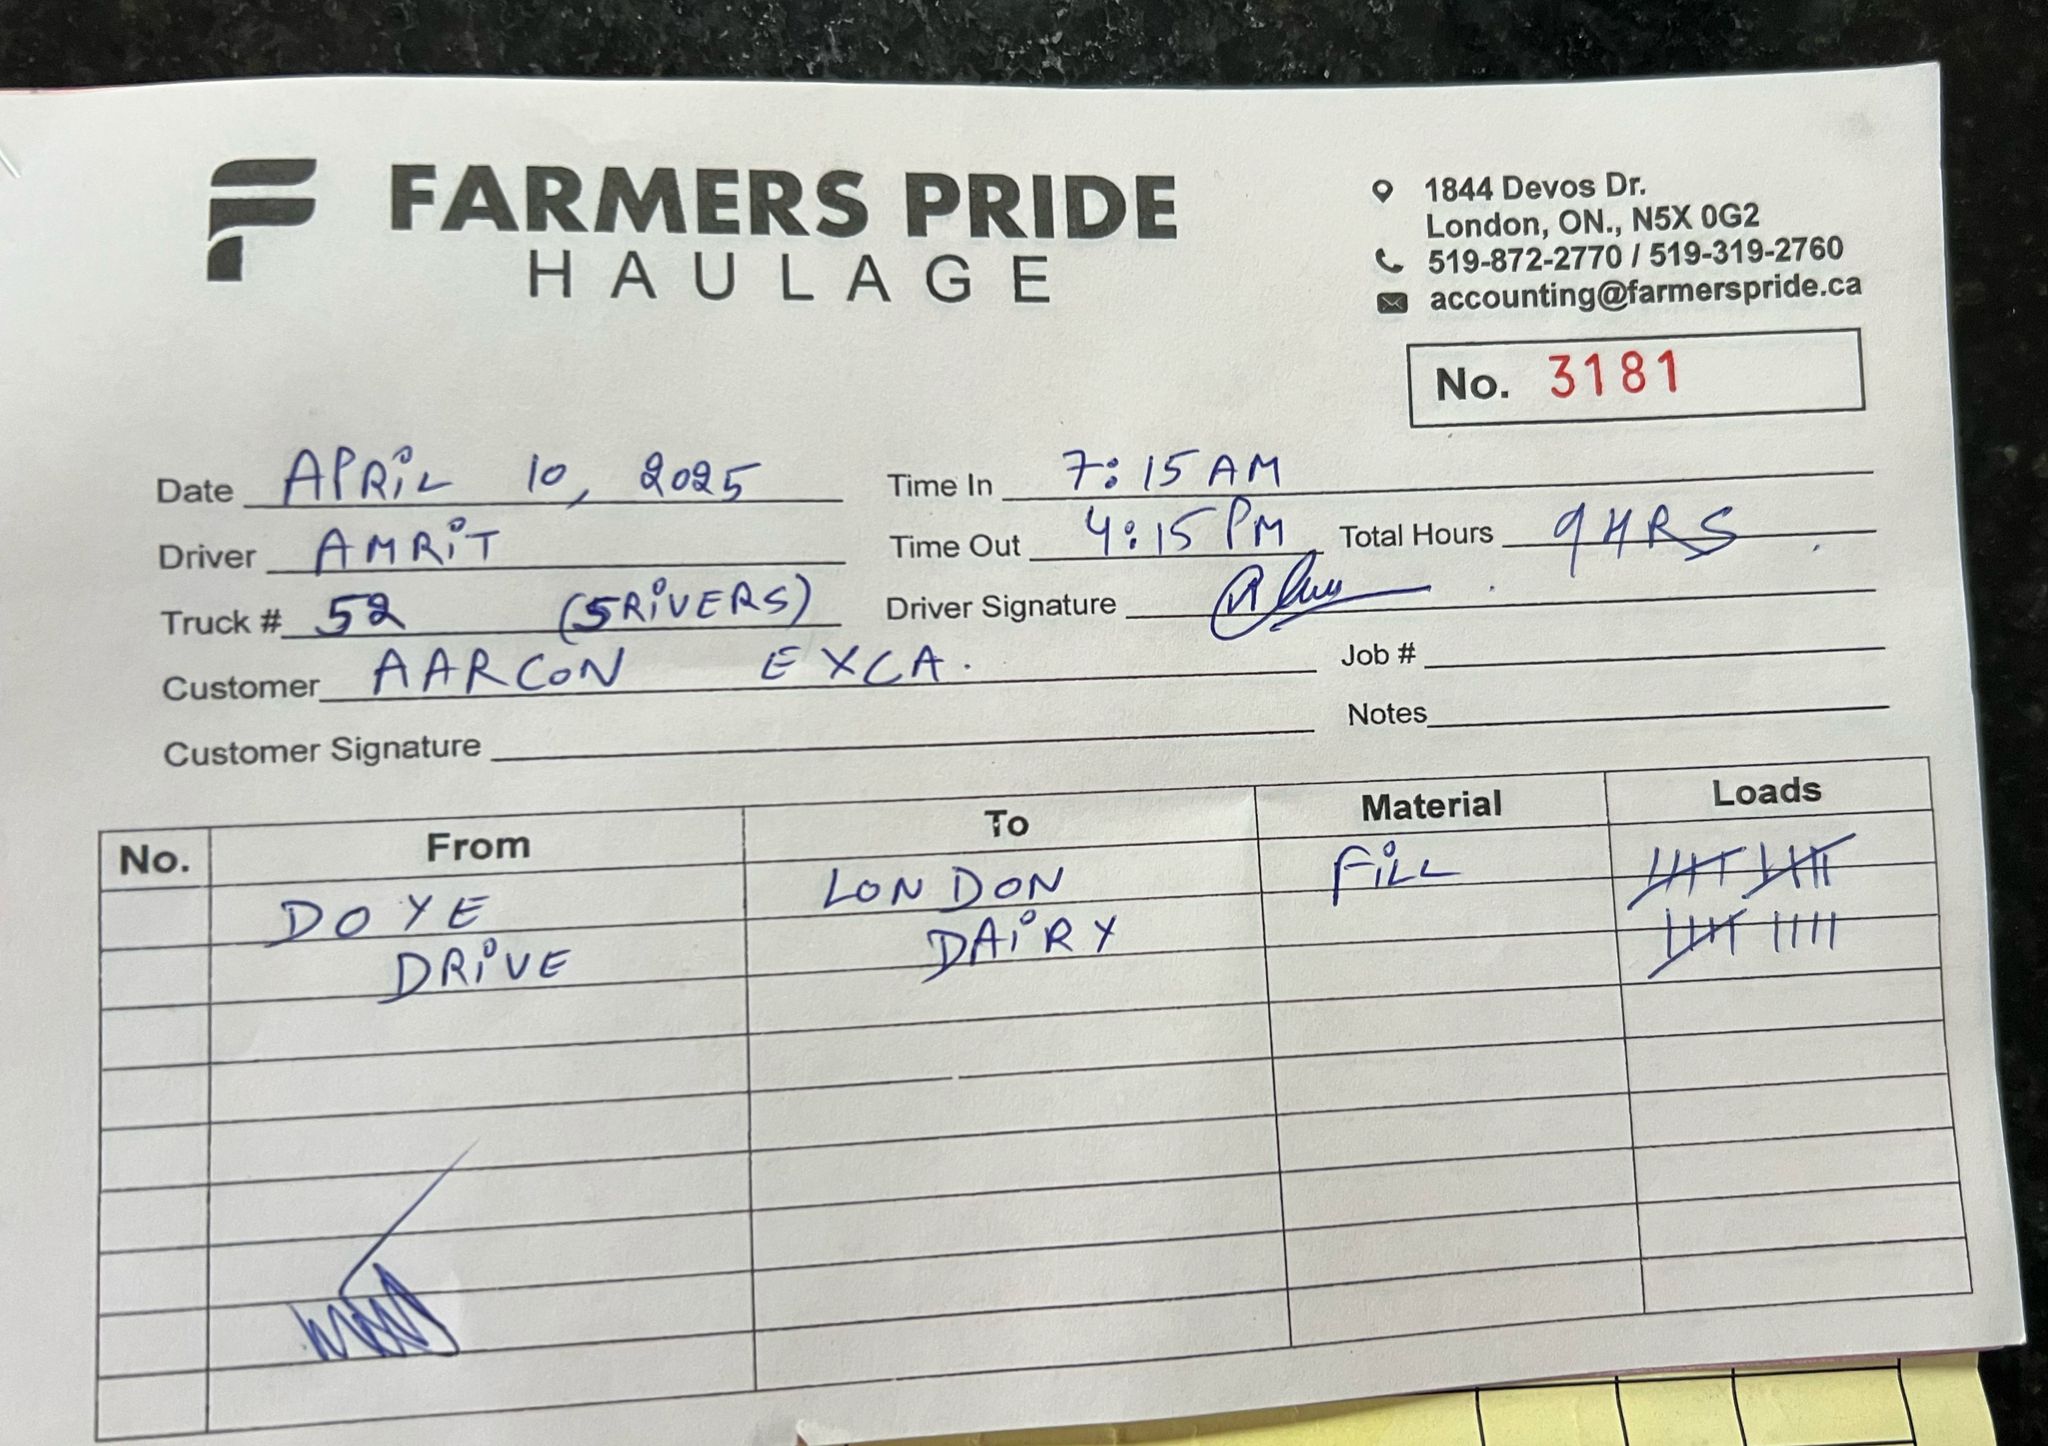 FARMERS PRIDE
HAULAGE
1844 Devos Dr.
London, ON., N5X 0G2
519-872-2770 / 519-319-2760
accounting@farmerspride.ca
No. 3181
Date APRiL 10, 2025 Time In 7:15 AM
Driver AMRiT Time Out 4:15 PM Total Hours 9 HRS
Truck # 52 (5RiVERS) Driver Signature
Customer AARCON EXCA. Job #
Customer Signature Notes
No. From To Material Loads
DOYE LONDON FiLL
DRiVE DAiRY